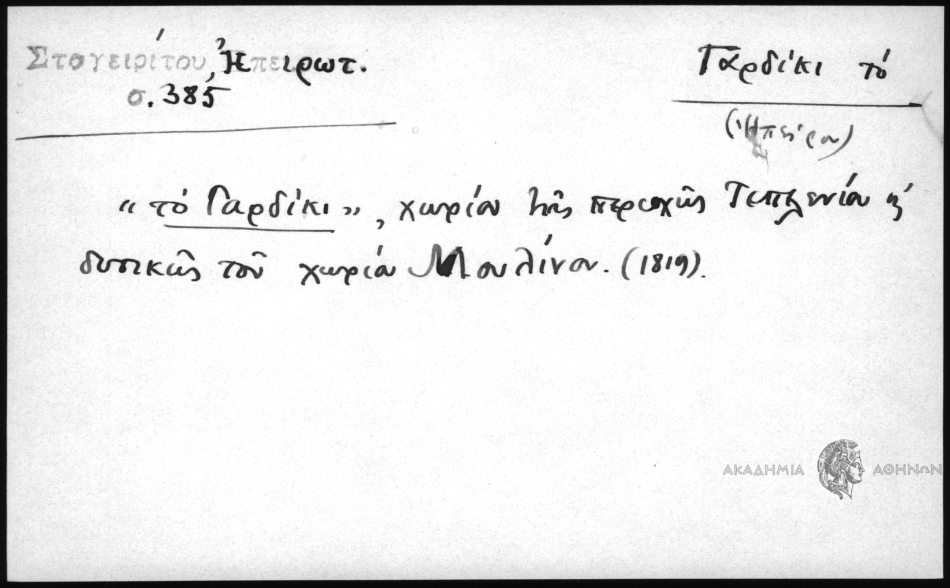 Σταγειρίτου Ἠπειρωτ.
σ. 385
Γαρδίκι τὸ
(Ἠπείρου)
"τὸ Γαρδίκι", χωρίον τῆς περιοχῆς Τεπελενίου
δυτικῶς τοῦ χωρίου Μουλίνου. (1819).
ΑΚΑΔΗΜΙΑ ΑΘΗΝΩΝ